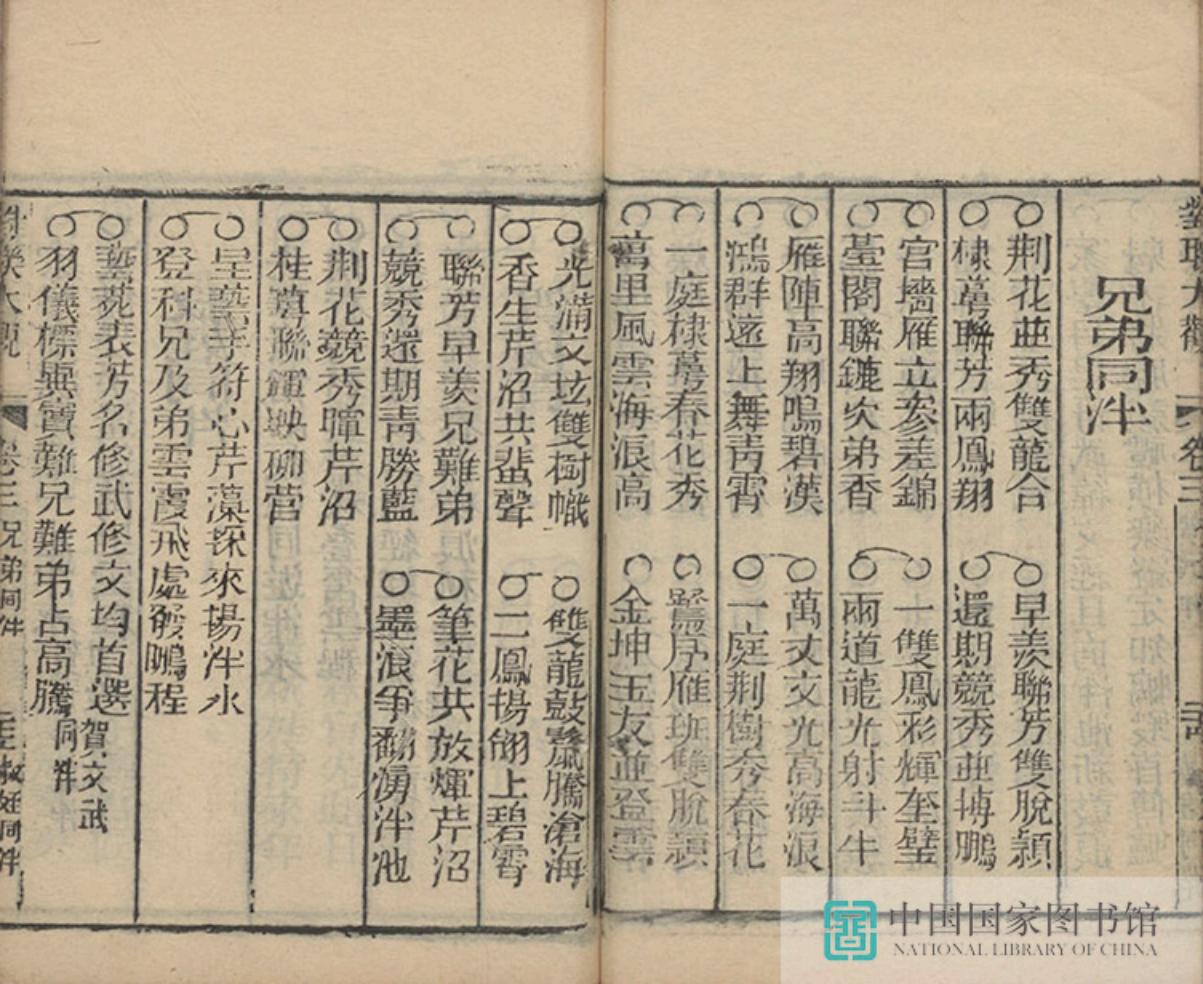 對聯大觀 卷三
兄弟同泮
荆花並秀雙龍合
棣萼聯芳兩鳳翔
早羨聯芳雙脫穎
還期競秀並摶鵬
宫墻雁立參差錦
䑓閣聯鑣次弟香
一雙鳳彩輝奎璧
兩道龍光射斗牛
雁陣高翔鳴碧漢
鴻群遠上舞青霄
萬丈文光高海浪
一庭荆樹秀春花
一庭棣萼春花秀
萬里風雲海浪高
鷺序雁班雙脫穎
金坤玉友並登雲
光滿文坛雙樹幟
香生芹沼共蜚聲
雙龍鼓鬣騰滄海
二鳳揚翎上碧霄
聯芳早羨兄難弟
競秀還期青勝藍
筆花共放煇芹沼
墨浪爭翻湧泮池
荆花競秀暐芹沼
桂萼聯輝映柳营
呈藝手符心芹藻深來揚泮水
登科兄及弟雲霞飛處發鵬程
藝苑表芳名修武修文均首選
羽儀標與實難兄難弟占高騰
賀文武
同泮
對聯大觀 卷三 兄弟同泮 叔姪同泮
中国国家图书馆
NATIONAL LIBRARY OF CHINA